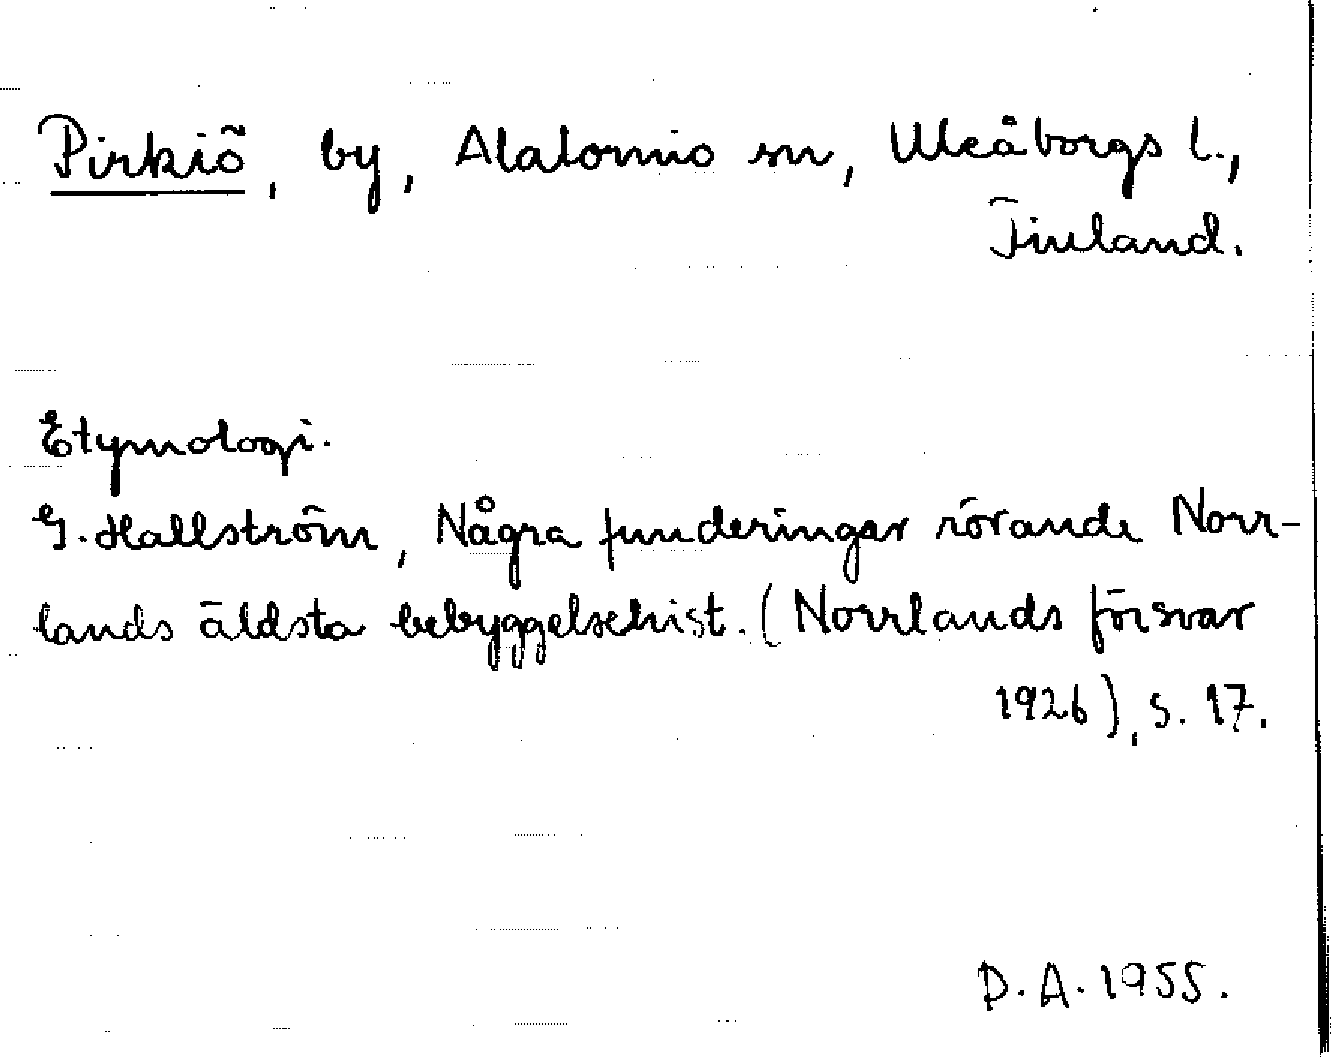 Pirkiö, by, Alatornio sn, Uleåborgs l.,
Finland.
Etymologi.
G. Hallström, Några funderingar rörande Norr-
lands äldsta bebyggelsehist. (Norrlands försvar
1926), s. 17.
D.A. 1955.